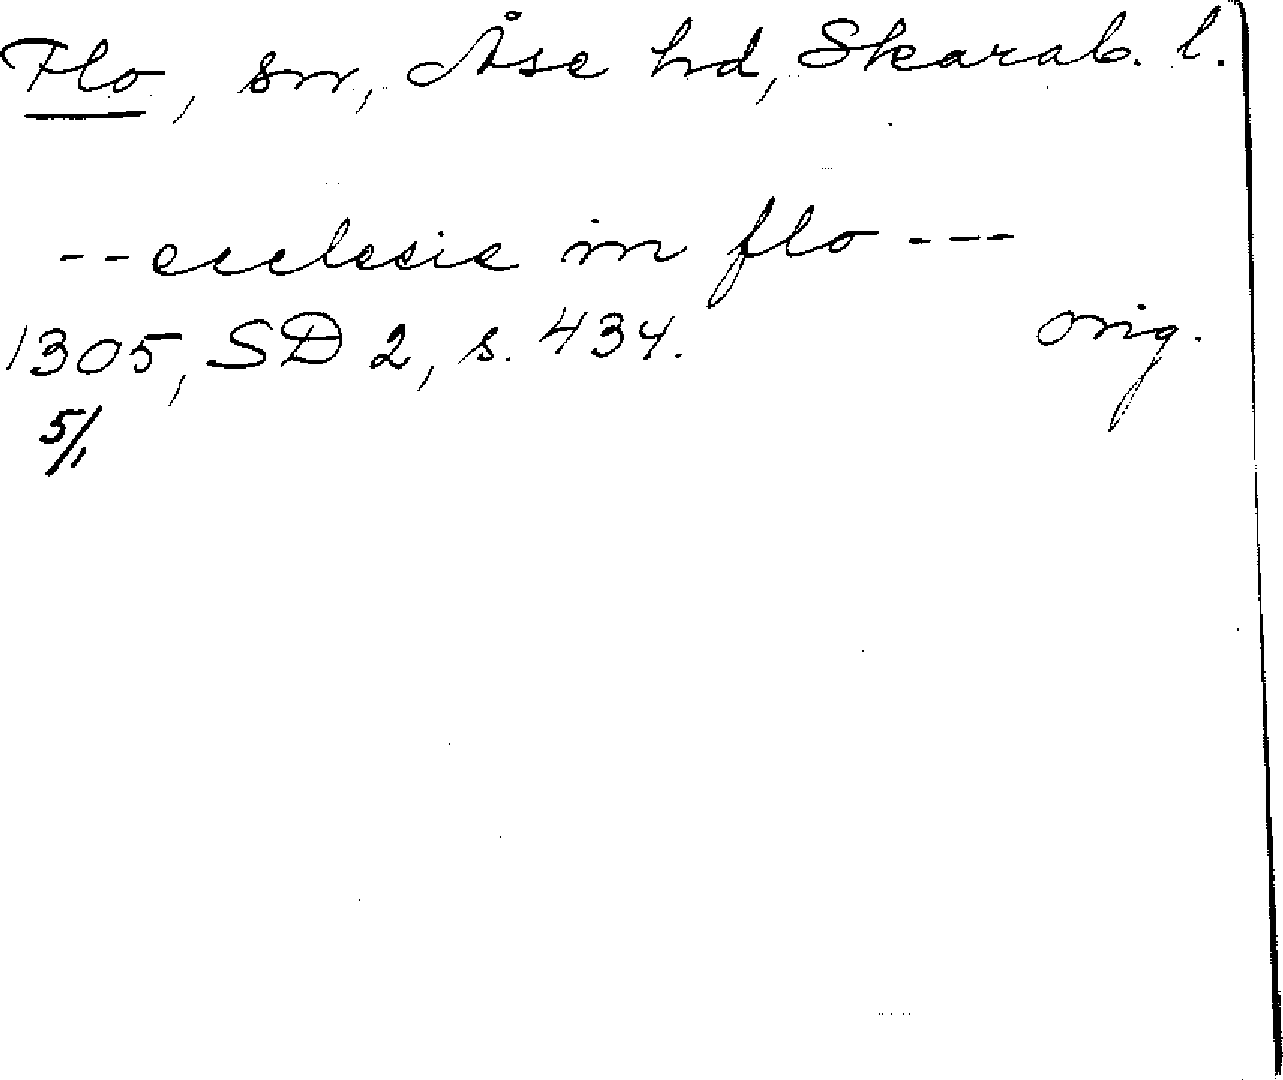 Flo, sn, Åse hd, Skarab. l.
--ecclesie in flo---
1305, SD 2, s. 434. orig.
5/1